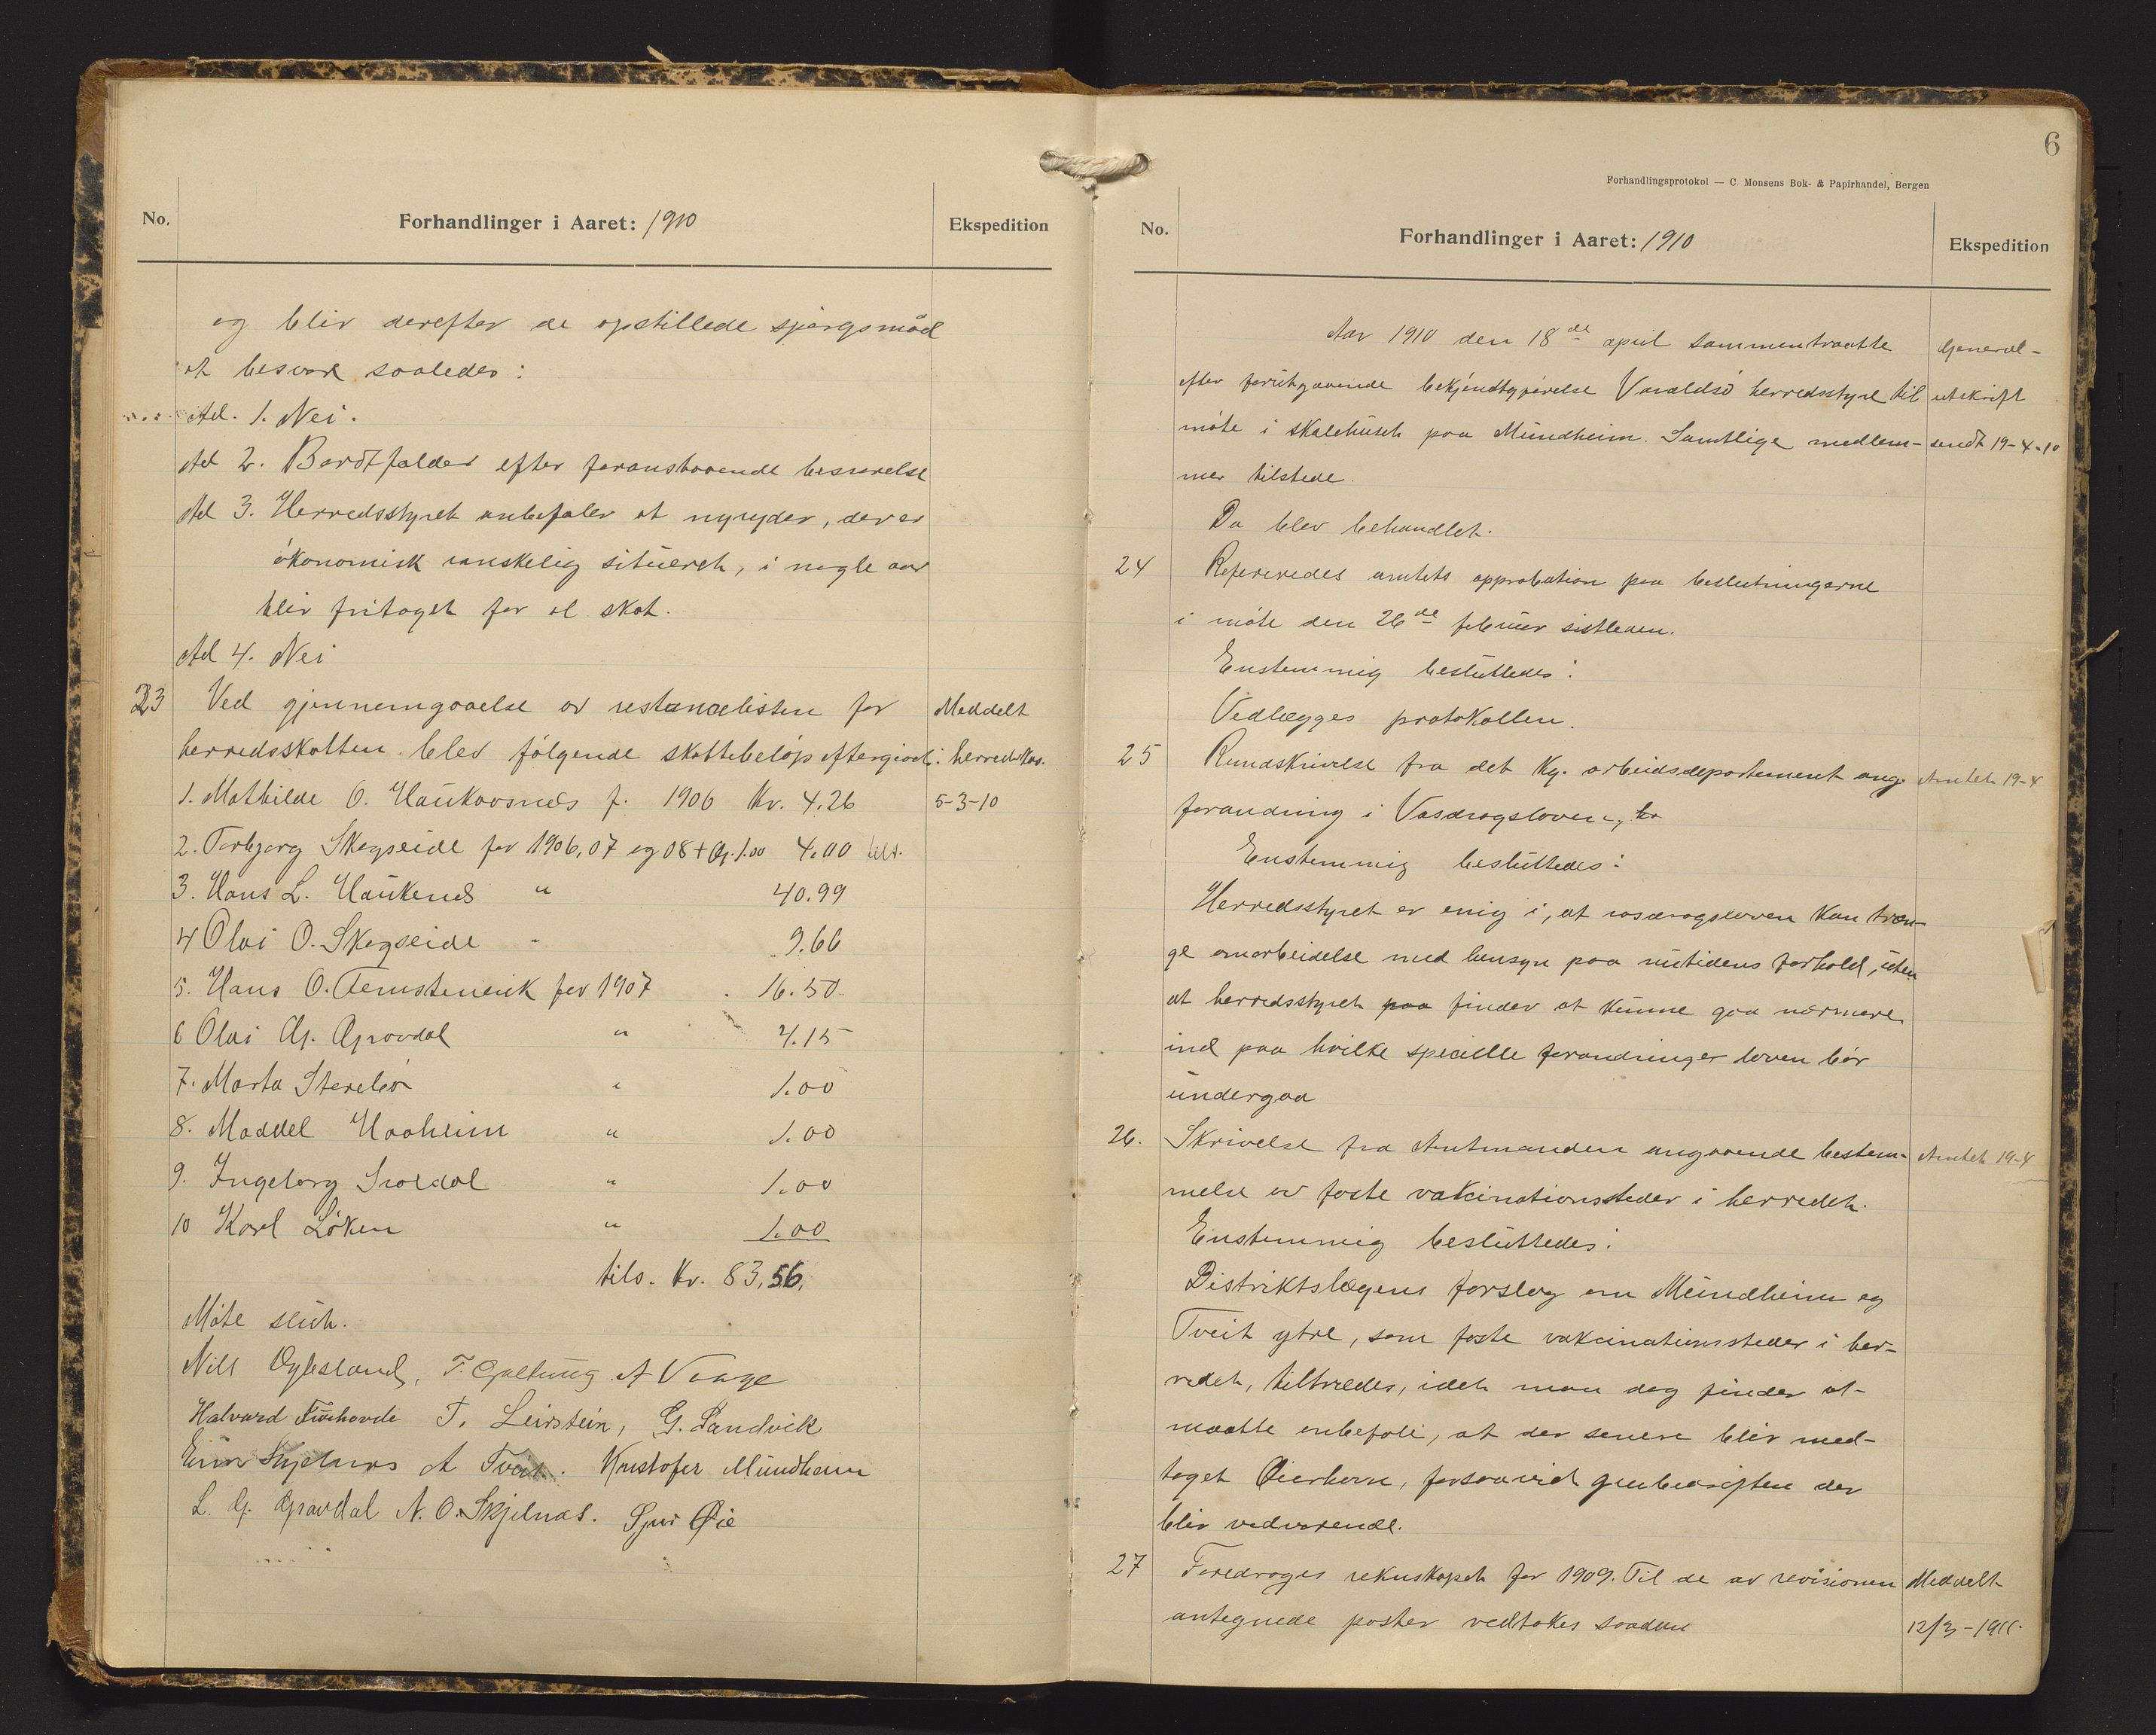 No.
Forhandlinger i Aaret: 1910
Ekspedition
og blir derefter de opstillede spørgsmål
at besvare saaledes:
Ad. 1. Nei.
Ad 2. Bortfalder efter foranstaaende besvarelse
Ad 3. Herredsstyret anbefaler at nyryder, der er
økonomisk vanskelig situeret, i nogle aar
blir fritaget for al skat.
Ad 4. Nei
23 Ved gjennemgaaelse av restancelisten for
Meddelt
herredsskatten blev følgende skattebeløp eftergivet:
herredskas.
1. Mathilde O. Haukaasnes f. 1906 Kr. 4.26
5-3-10
2. Torbjørg Skogseide for 1906, 07 og 08 + 1.00 4.00 tils.
3. Hans L. Haukenes " 40.99
4 Olai O. Skogseide " 9.66
5. Hans O. for 1907 16.50
6 Olai G. Gravdal " 4.15
7. Marta " 1.00
8. Maddel Haaheim " 1.00
9. Ingeborg " 1.00
10 Karl Løken " 1.00
tils. Kr. 83,56.
Møte slut.
Nils Øglesland, T. Galtung. A Vaage
Halvard T. Leirstein, G. Sandvik
Skjelnes A Tveit. Kristofer Mundheim
L. G. Gravdal N. O. Skjelnas. Sjur Øie
6
Forhandlingsprotokol — C. Monsens Bok- & Papirhandel, Bergen
No.
Forhandlinger i Aaret: 1910
Ekspedition
Aar 1910 den 18de april sammentraatte
General-
efter forutgaaende bekjendtgjørelse Varaldsø herredsstyre til
utskrift
møte i skolehuset paa Mundheim. Samtlige medlem-
sendt 19-4-10
mer tilstede.
Da blev behandlet.
24 Refereredes amtets approbation paa beslutningerne
i møte den 26de februar sistleden.
Enstemmig besluttedes:
Vedlægges protokollen.
25 Rundskrivelse fra det Kg. arbeidsdepartement ang.
Amtet 19-4
forandring i Vasdragsloven,
Enstemmig besluttedes:
Herredsstyret er enig i, at vasdragsloven kan træn-
ge omarbeidelse med hensyn paa nutidens forhold, uten
at herredsstyret paa finder at kunne gaa nærmere
ind paa hvilke specielle forandringer loven bør
undergaa
26. Skrivelse fra Amtmanden angaaende bestem-
Amtet 19-4
melse av faste vakcinationssteder i herredet.
Enstemmig besluttedes:
Distriktslægens forslag om Mundheim og
Tveit ytre, som faste vakcinationssteder i her-
redet, tiltrædes, idet man dog finder at-
maatte anbefale, at der senere blir med-
taget Øierhavn, forsaavidt grubedriften der
blir vedvarende.
27 Foredroges rekuskapet for 1909. Til de av revisionen
Meddelt
antegnede poster vedtokes saadan
12/3-1911.